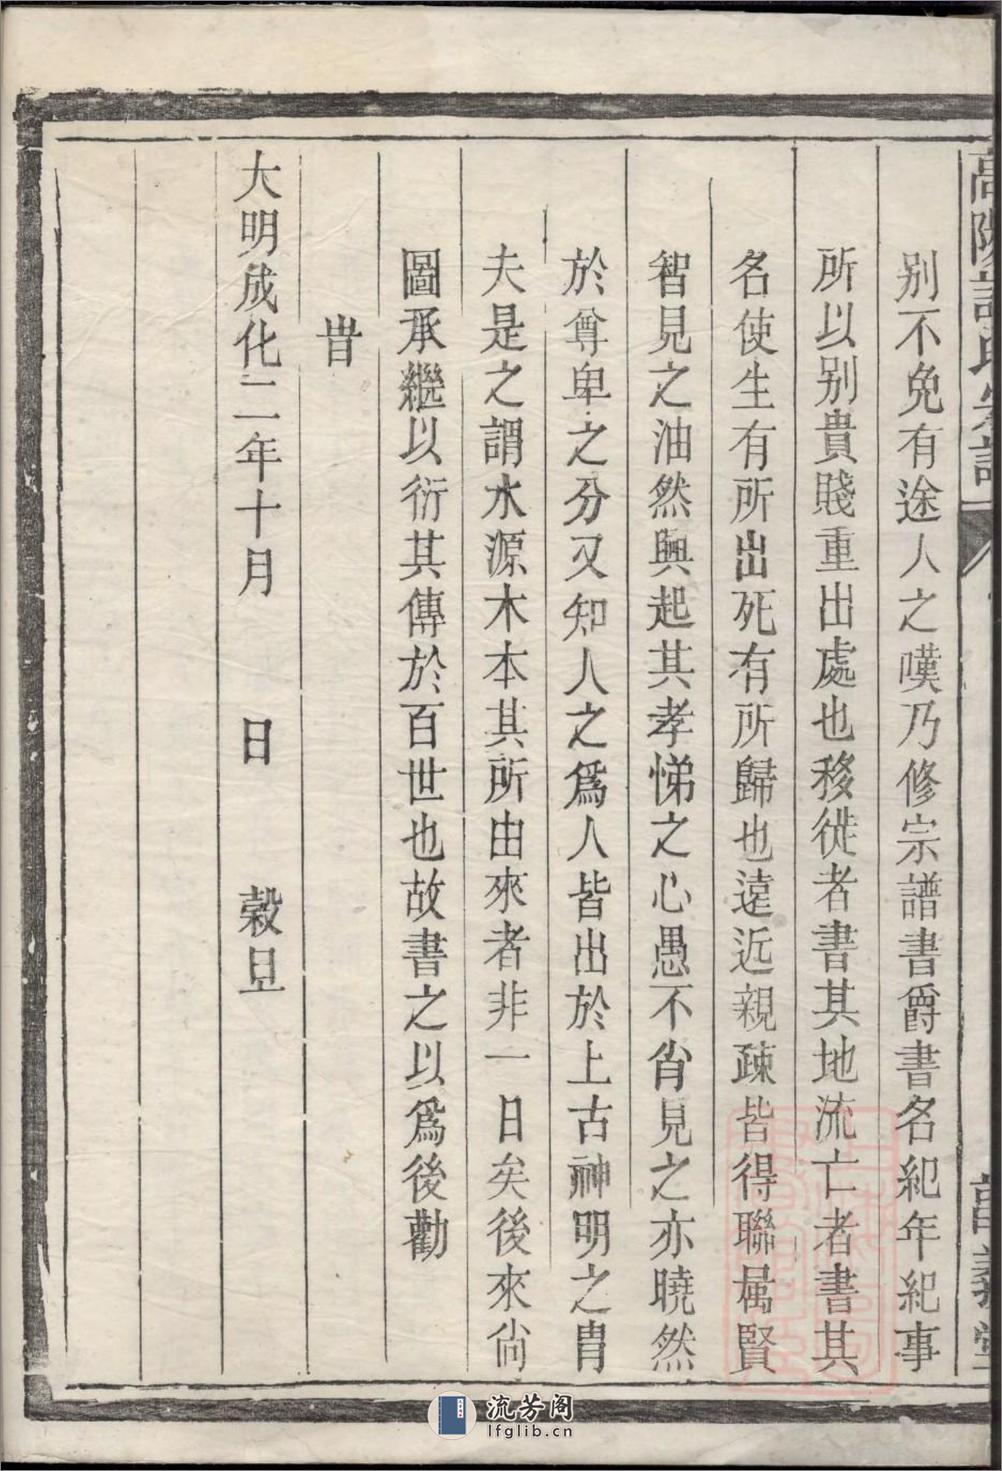 高陽許氏宗譜
别不免有途人之嘆乃修宗譜書爵書名紀年紀事
所以别貴賤重出處也移徙者書其地流亡者書其
名使生有所出死有所歸也遠近親疎皆得聯属賢
智見之油然興起其孝悌之心愚不肖見之亦曉然
於尊卑之分又知人之爲人皆出於上古神明之胄
夫是之謂水源木本其所由來者非一日矣後來尙
圖承繼以衍其傳於百世也故書之以爲後勸
旹
大明成化二年十月 日 榖旦
流芳阁
lfglib.cn